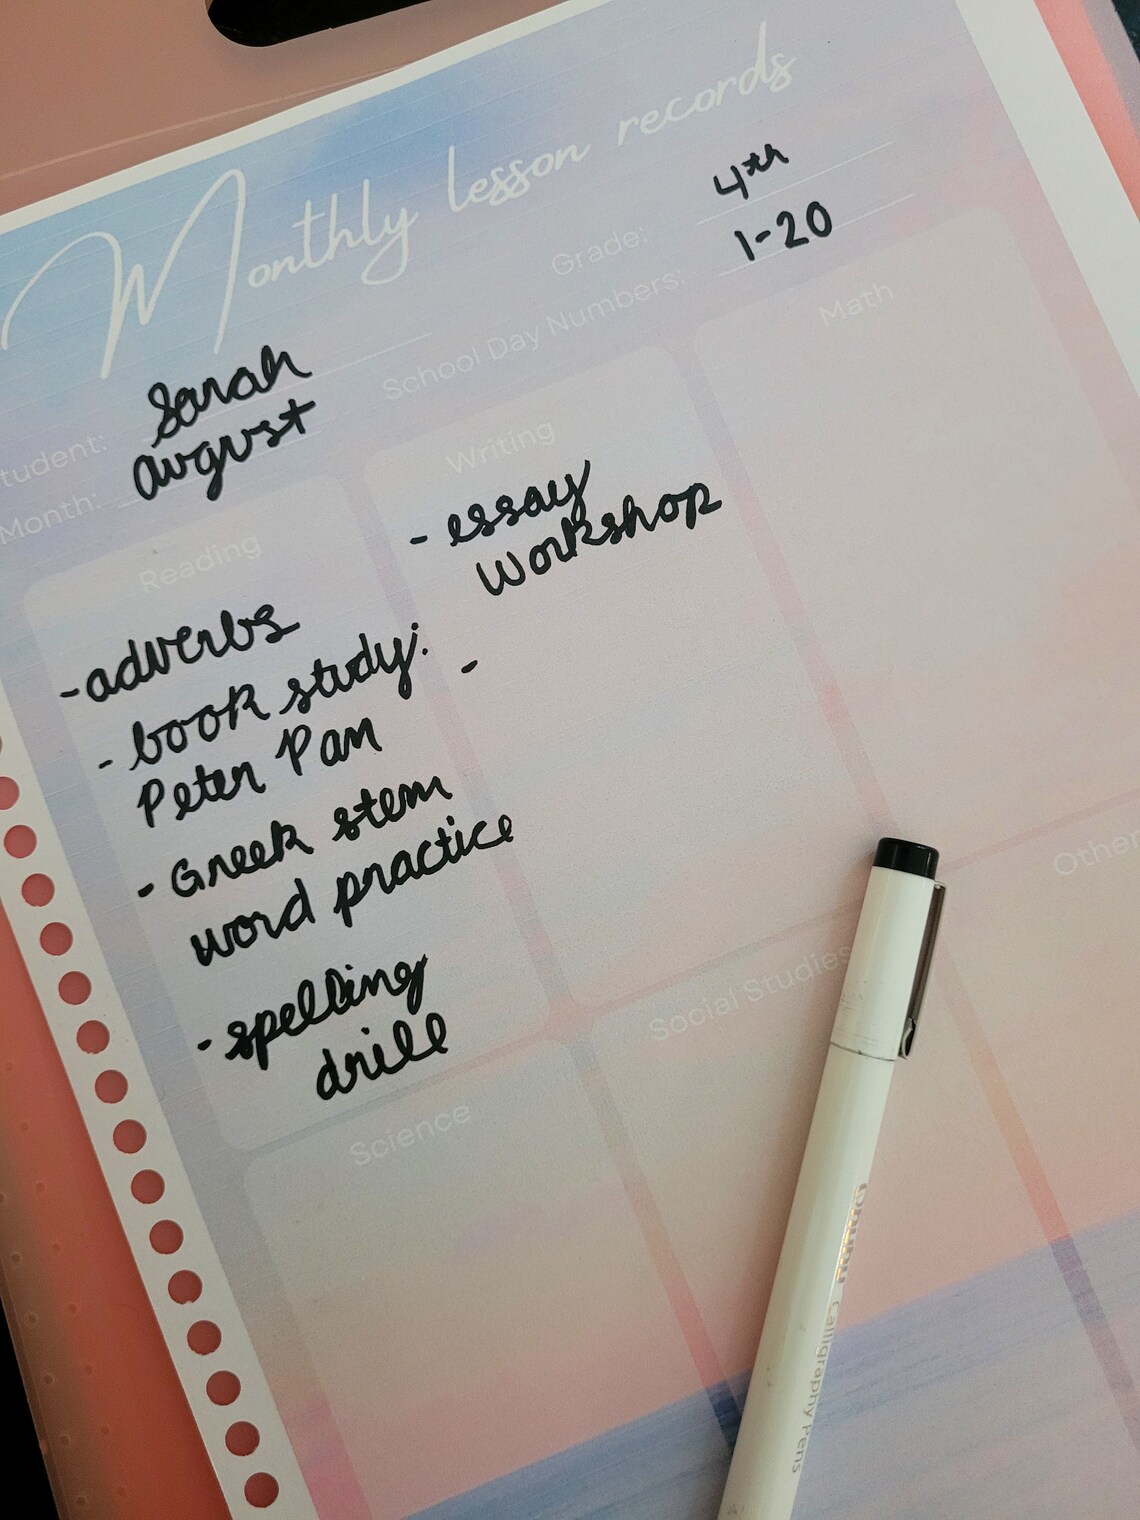 Monthly lesson records
Grade: 4th
School Day Numbers: 1-20
tudent: Sarah
Month: august
Reading
-adverbs
- book study:
Peter Pan
- Greek stem
word practice
- spelling
drill
Writing
- essay
workshop
-
Math
Science
Social Studies
Other
Calligraphy Pens